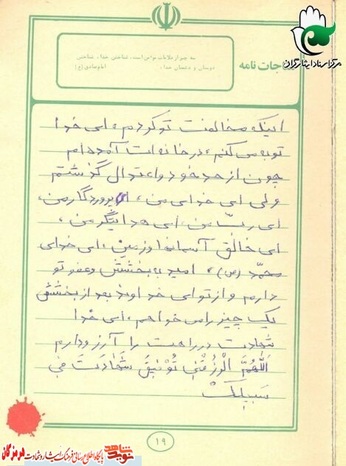 مرکز اسناد ایثارگران
مناجات نامه
سه چیز از علامات مؤمن است، شناختن خدا، شناختن
دوستان و دشمنان خدا.
امام صادق(ع)
اینکه مخالفت تو کردم، ای خدا
توبه می کنم، در خانه ات آمده ام
چون از حد خود و اعتدال گذشتم
ولی ای خدای من، ای پروردگار من،
ای رب من، ای هدایتگر من،
ای خالق آسمانها و زمین، ای خدای
محمد (ص)، امید به بخشش و عفو تو
دارم و از تو ای خداوند بعد از بخشش
یک چیز را می خواهم، ای خدا
شهادت در راهت را آرزو دارم
اللهم الرزقنی توفیق شهادت فی
سبیلک
۱۹
نوید شاهد
پایگاه اطلاع رسانی فرهنگ ایثار و شهادت هرمزگان